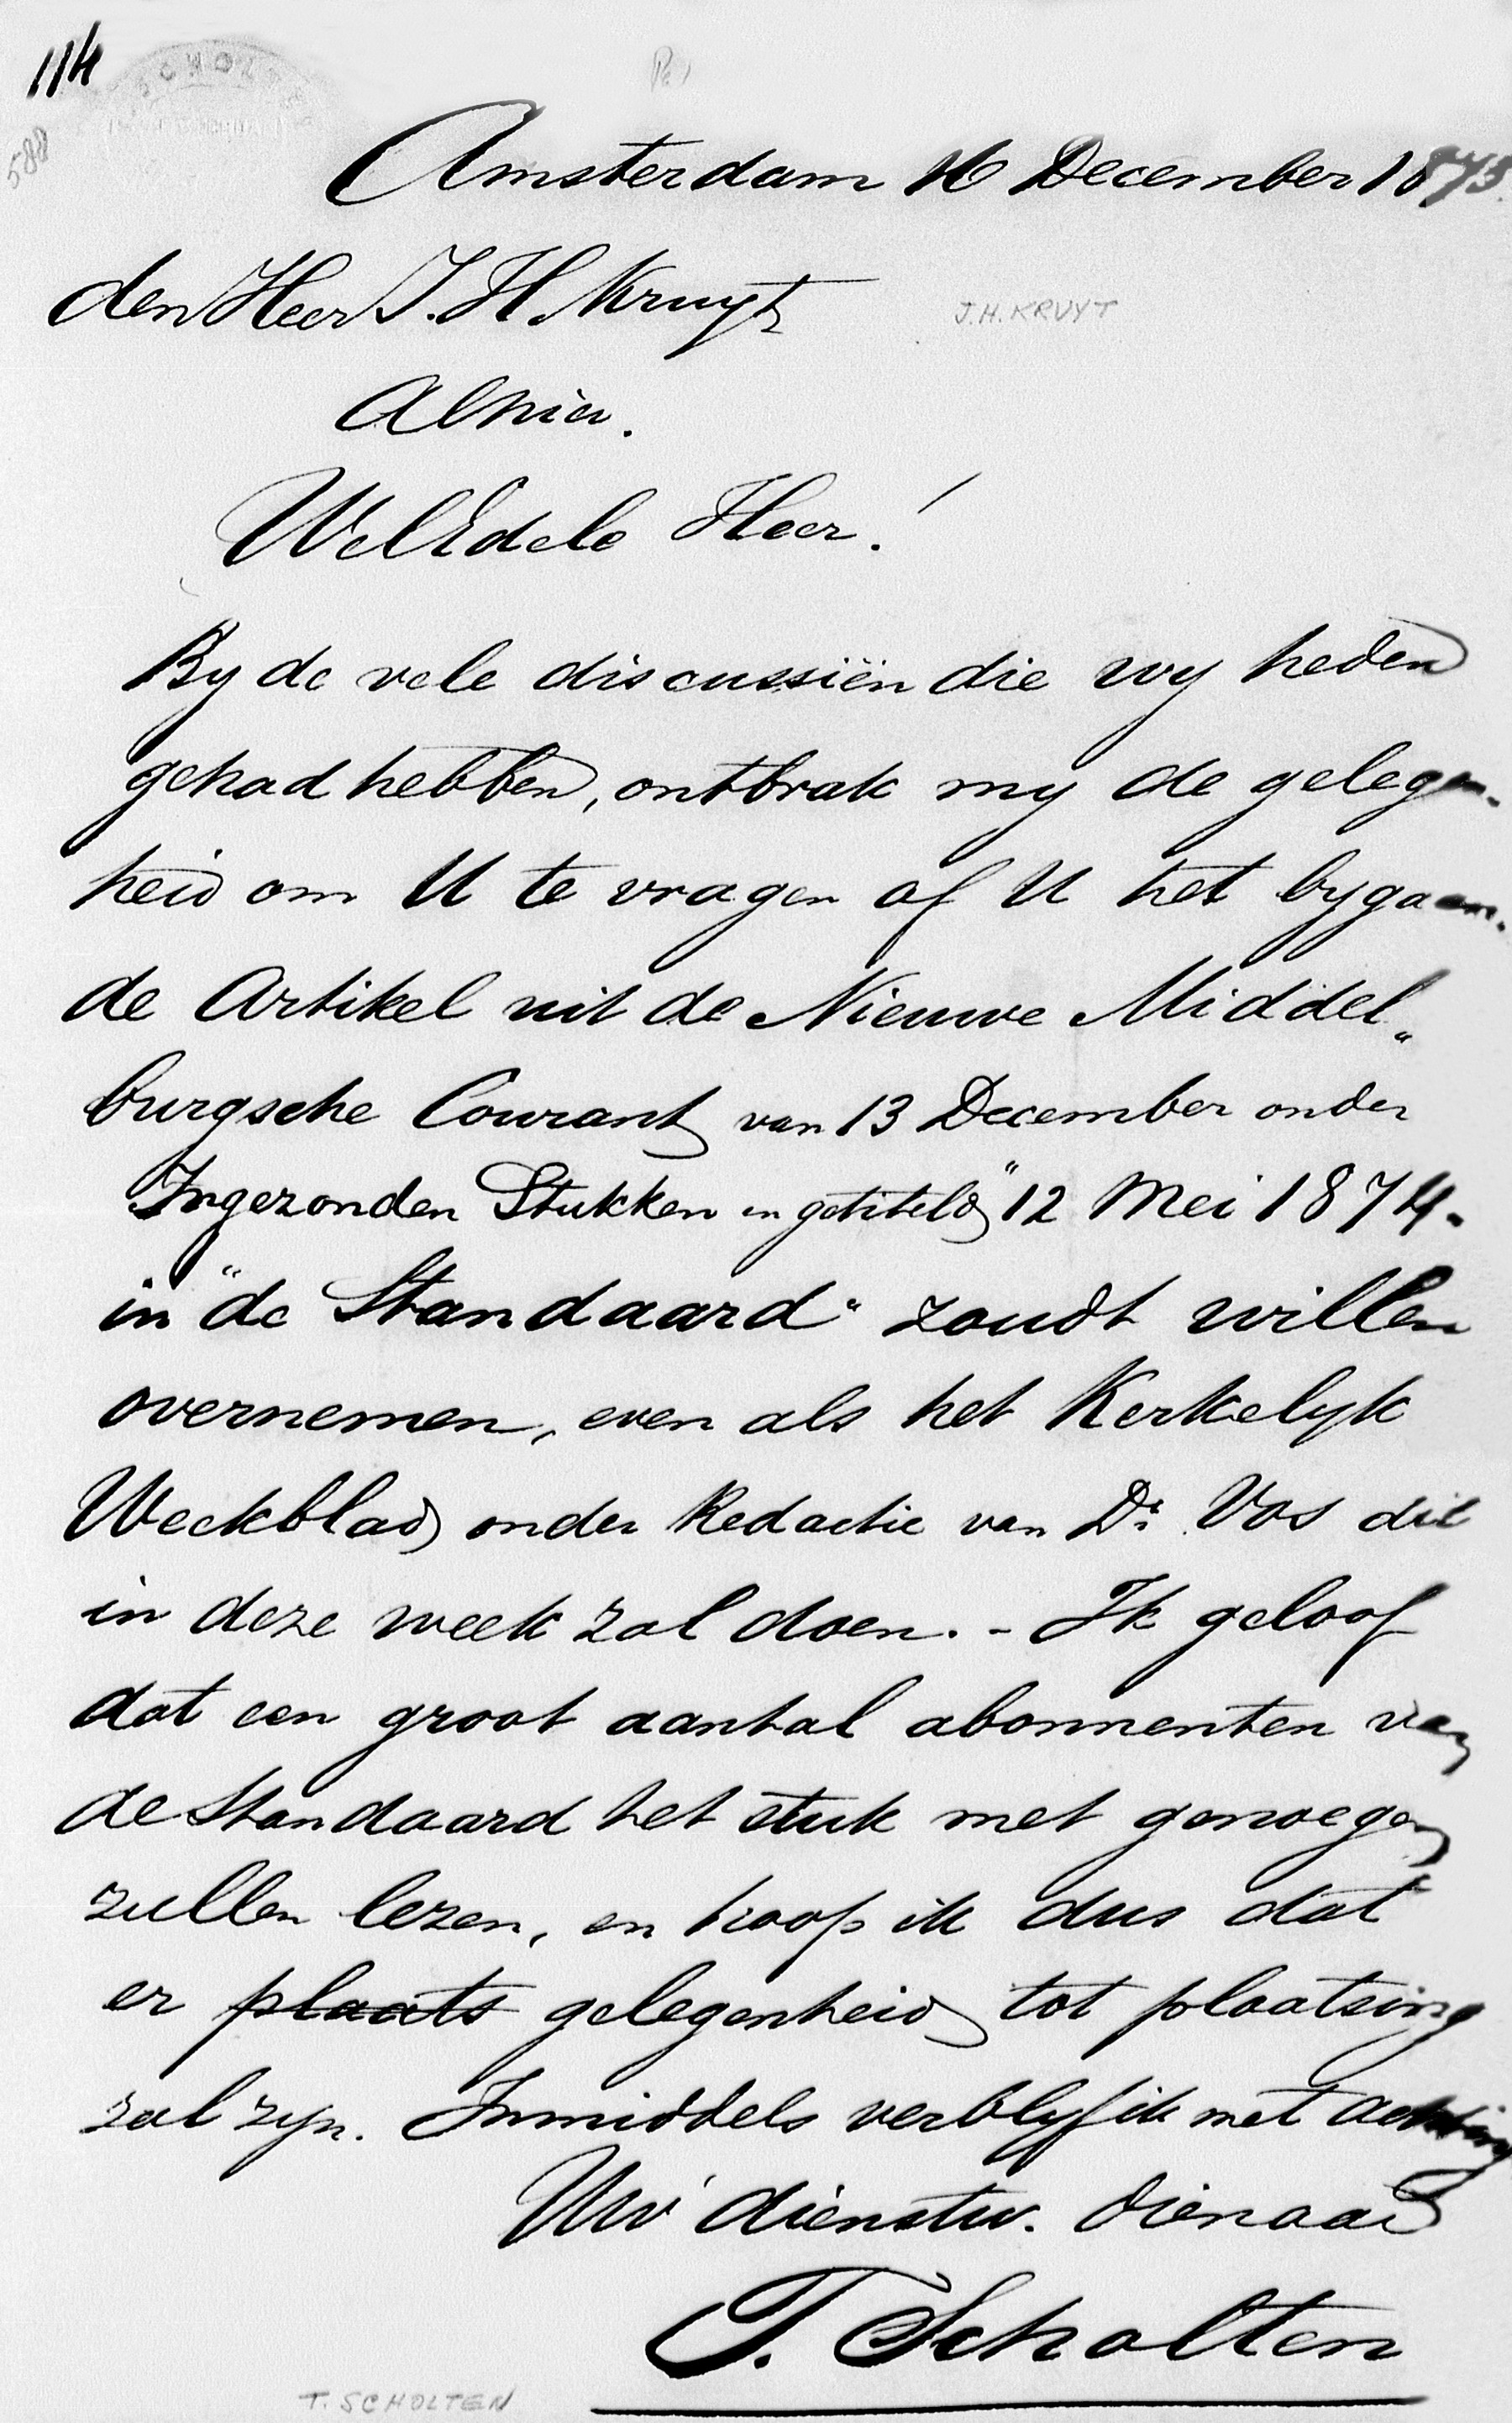 114
588
SCHOL
Amsterdam 16 December 1873.
den Heer J. H. Kruyt
J.H. KRUYT
Alhier.
WelEdele Heer!
By de vele discussiën die wy heden
gehad hebben, ontbrak my de gelegen-
heid om U te vragen of U het bygaan-
de Artikel uit de Nieuwe Middel„
burgsche Courant van 13 December onder
Ingezonden Stukken en getiteld "12 Mei 1874.
in "de Standaard" zoudt willen
overnemen, even als het Kerkelyk
Weekblad onder Redactie van Dr. Vos dit
in deze week zal doen. - Ik geloof
dat een groot aantal abonnenten van
de Standaard het stuk met genoegen
zullen lezen, en hoop ik dus dat
er plaats gelegenheid tot plaatsing
zal zyn. Inmiddels verblyf ik met achting
Uw dienstw. dienaar
T. Scholten
T. SCHOLTEN